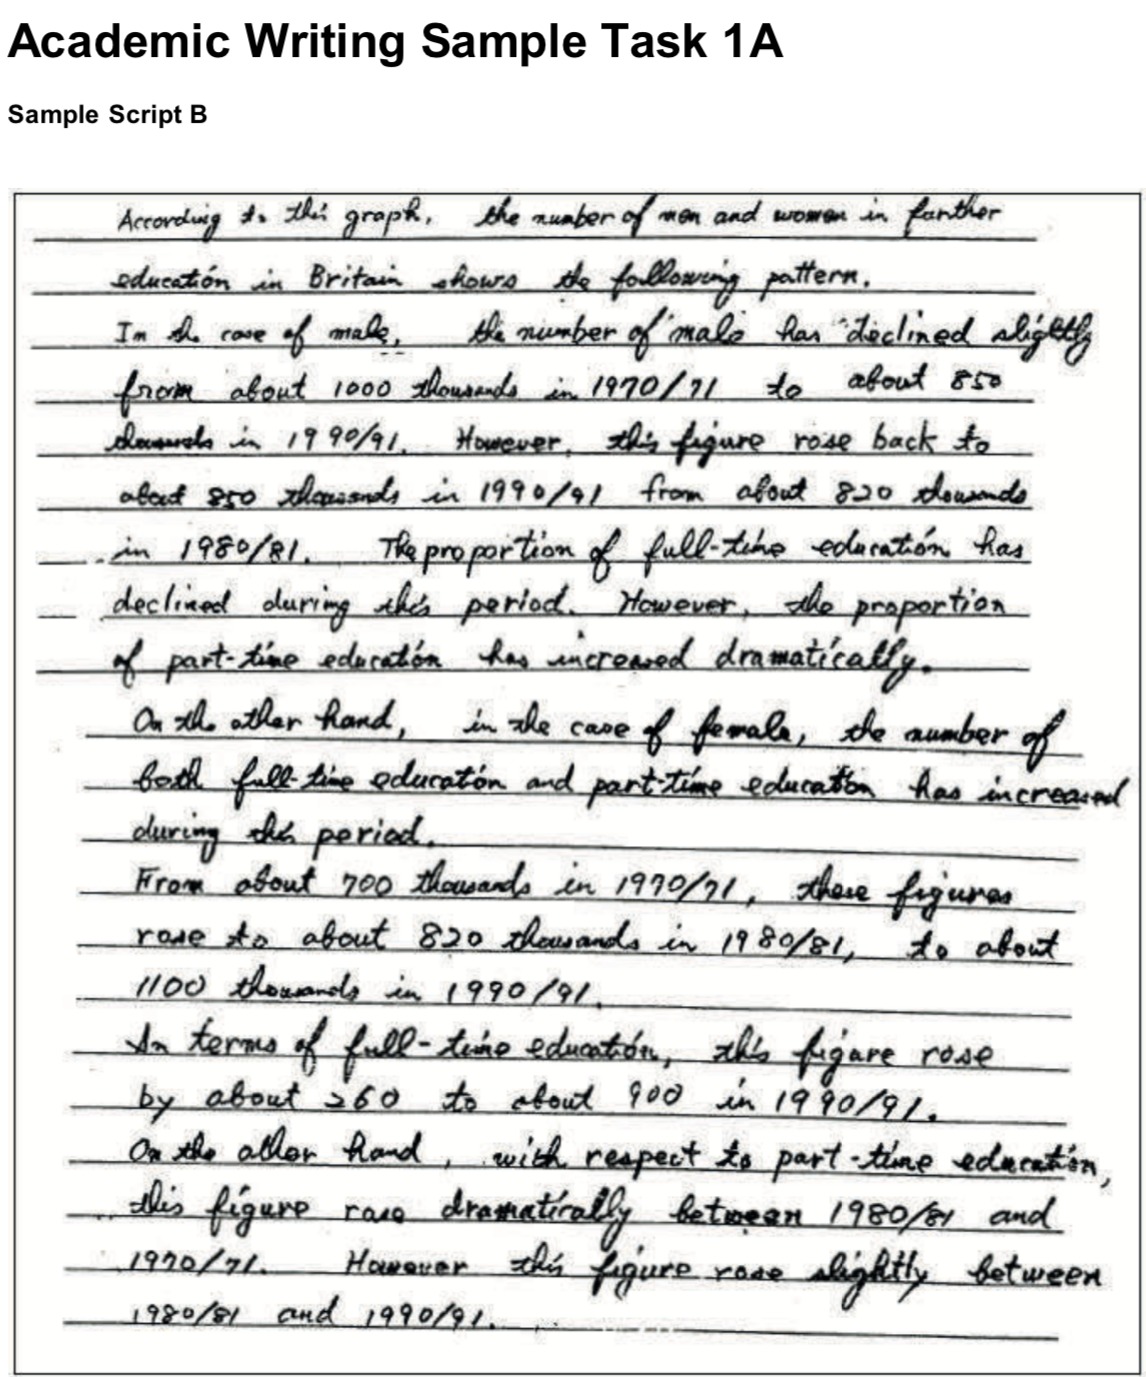 Academic Writing Sample Task 1A
Sample Script B
According to this graph, the number of men and women in farther
education in Britain shows the following pattern.
In the case of male, the number of male has declined slightly
from about 1000 thousands in 1970/71 to about 850
thousands in 1990/91. However, this figure rose back to
about 850 thousands in 1990/91 from about 820 thousands
in 1980/81. The proportion of full-time education has
declined during this period. However, the proportion
of part-time education has increased dramatically.
On the other hand, in the case of female, the number of
both full-time education and part-time education has increased
during this period.
From about 700 thousands in 1970/71, these figures
rose to about 820 thousands in 1980/81, to about
1100 thousands in 1990/91.
In terms of full-time education, this figure rose
by about 260 to about 900 in 1990/91.
On the other hand, with respect to part-time education,
this figure rose dramatically between 1980/81 and
1970/71. However this figure rose slightly between
1980/81 and 1990/91.